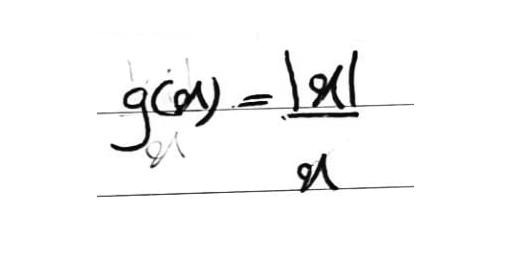 g(x) = |x|/x